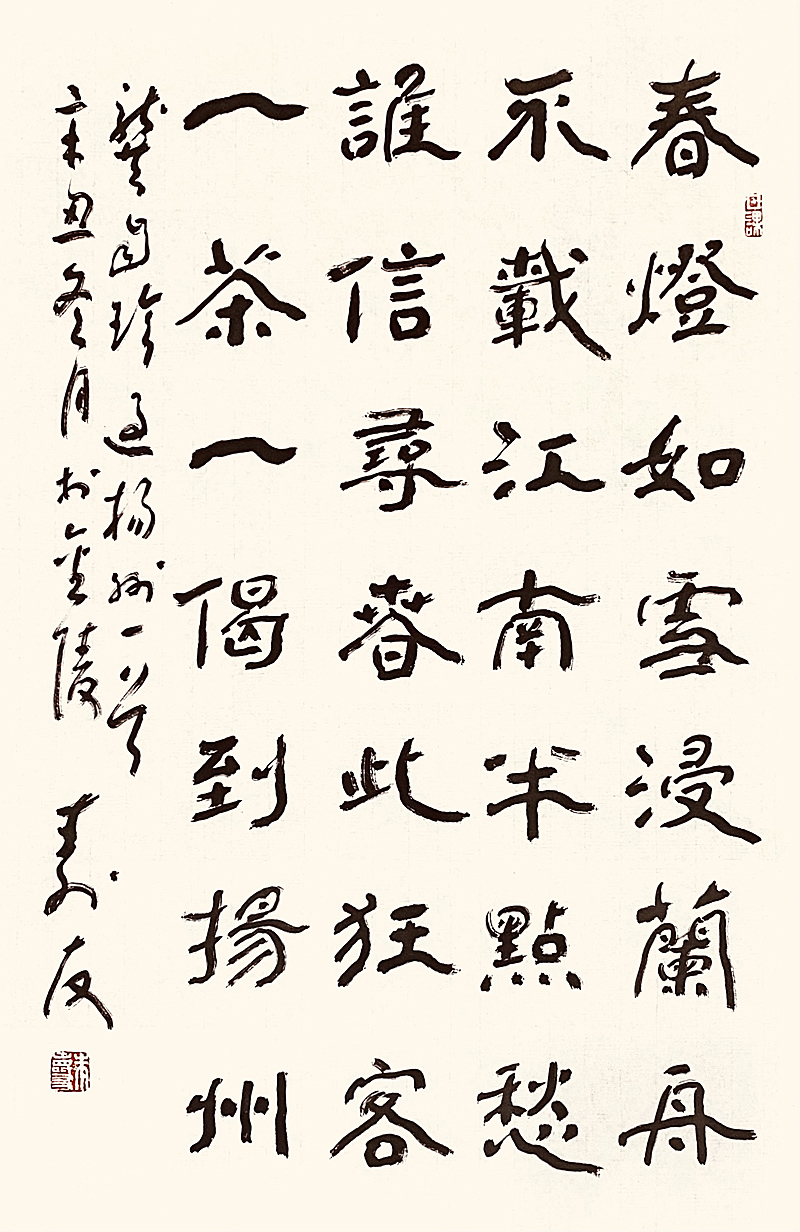 春燈如雪浸蘭舟
不載江南半點愁
誰信尋春此狂客
一茶一偈到揚州
龔自珍過揚州一首
辛丑冬月於金陵 壽友
日課